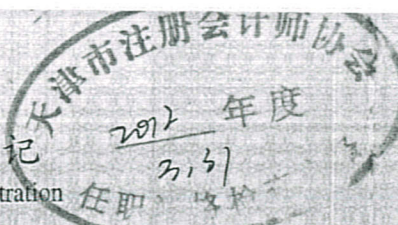 天津市注册会计师协会
2012 年度
3.31
记
tration
任职资格检